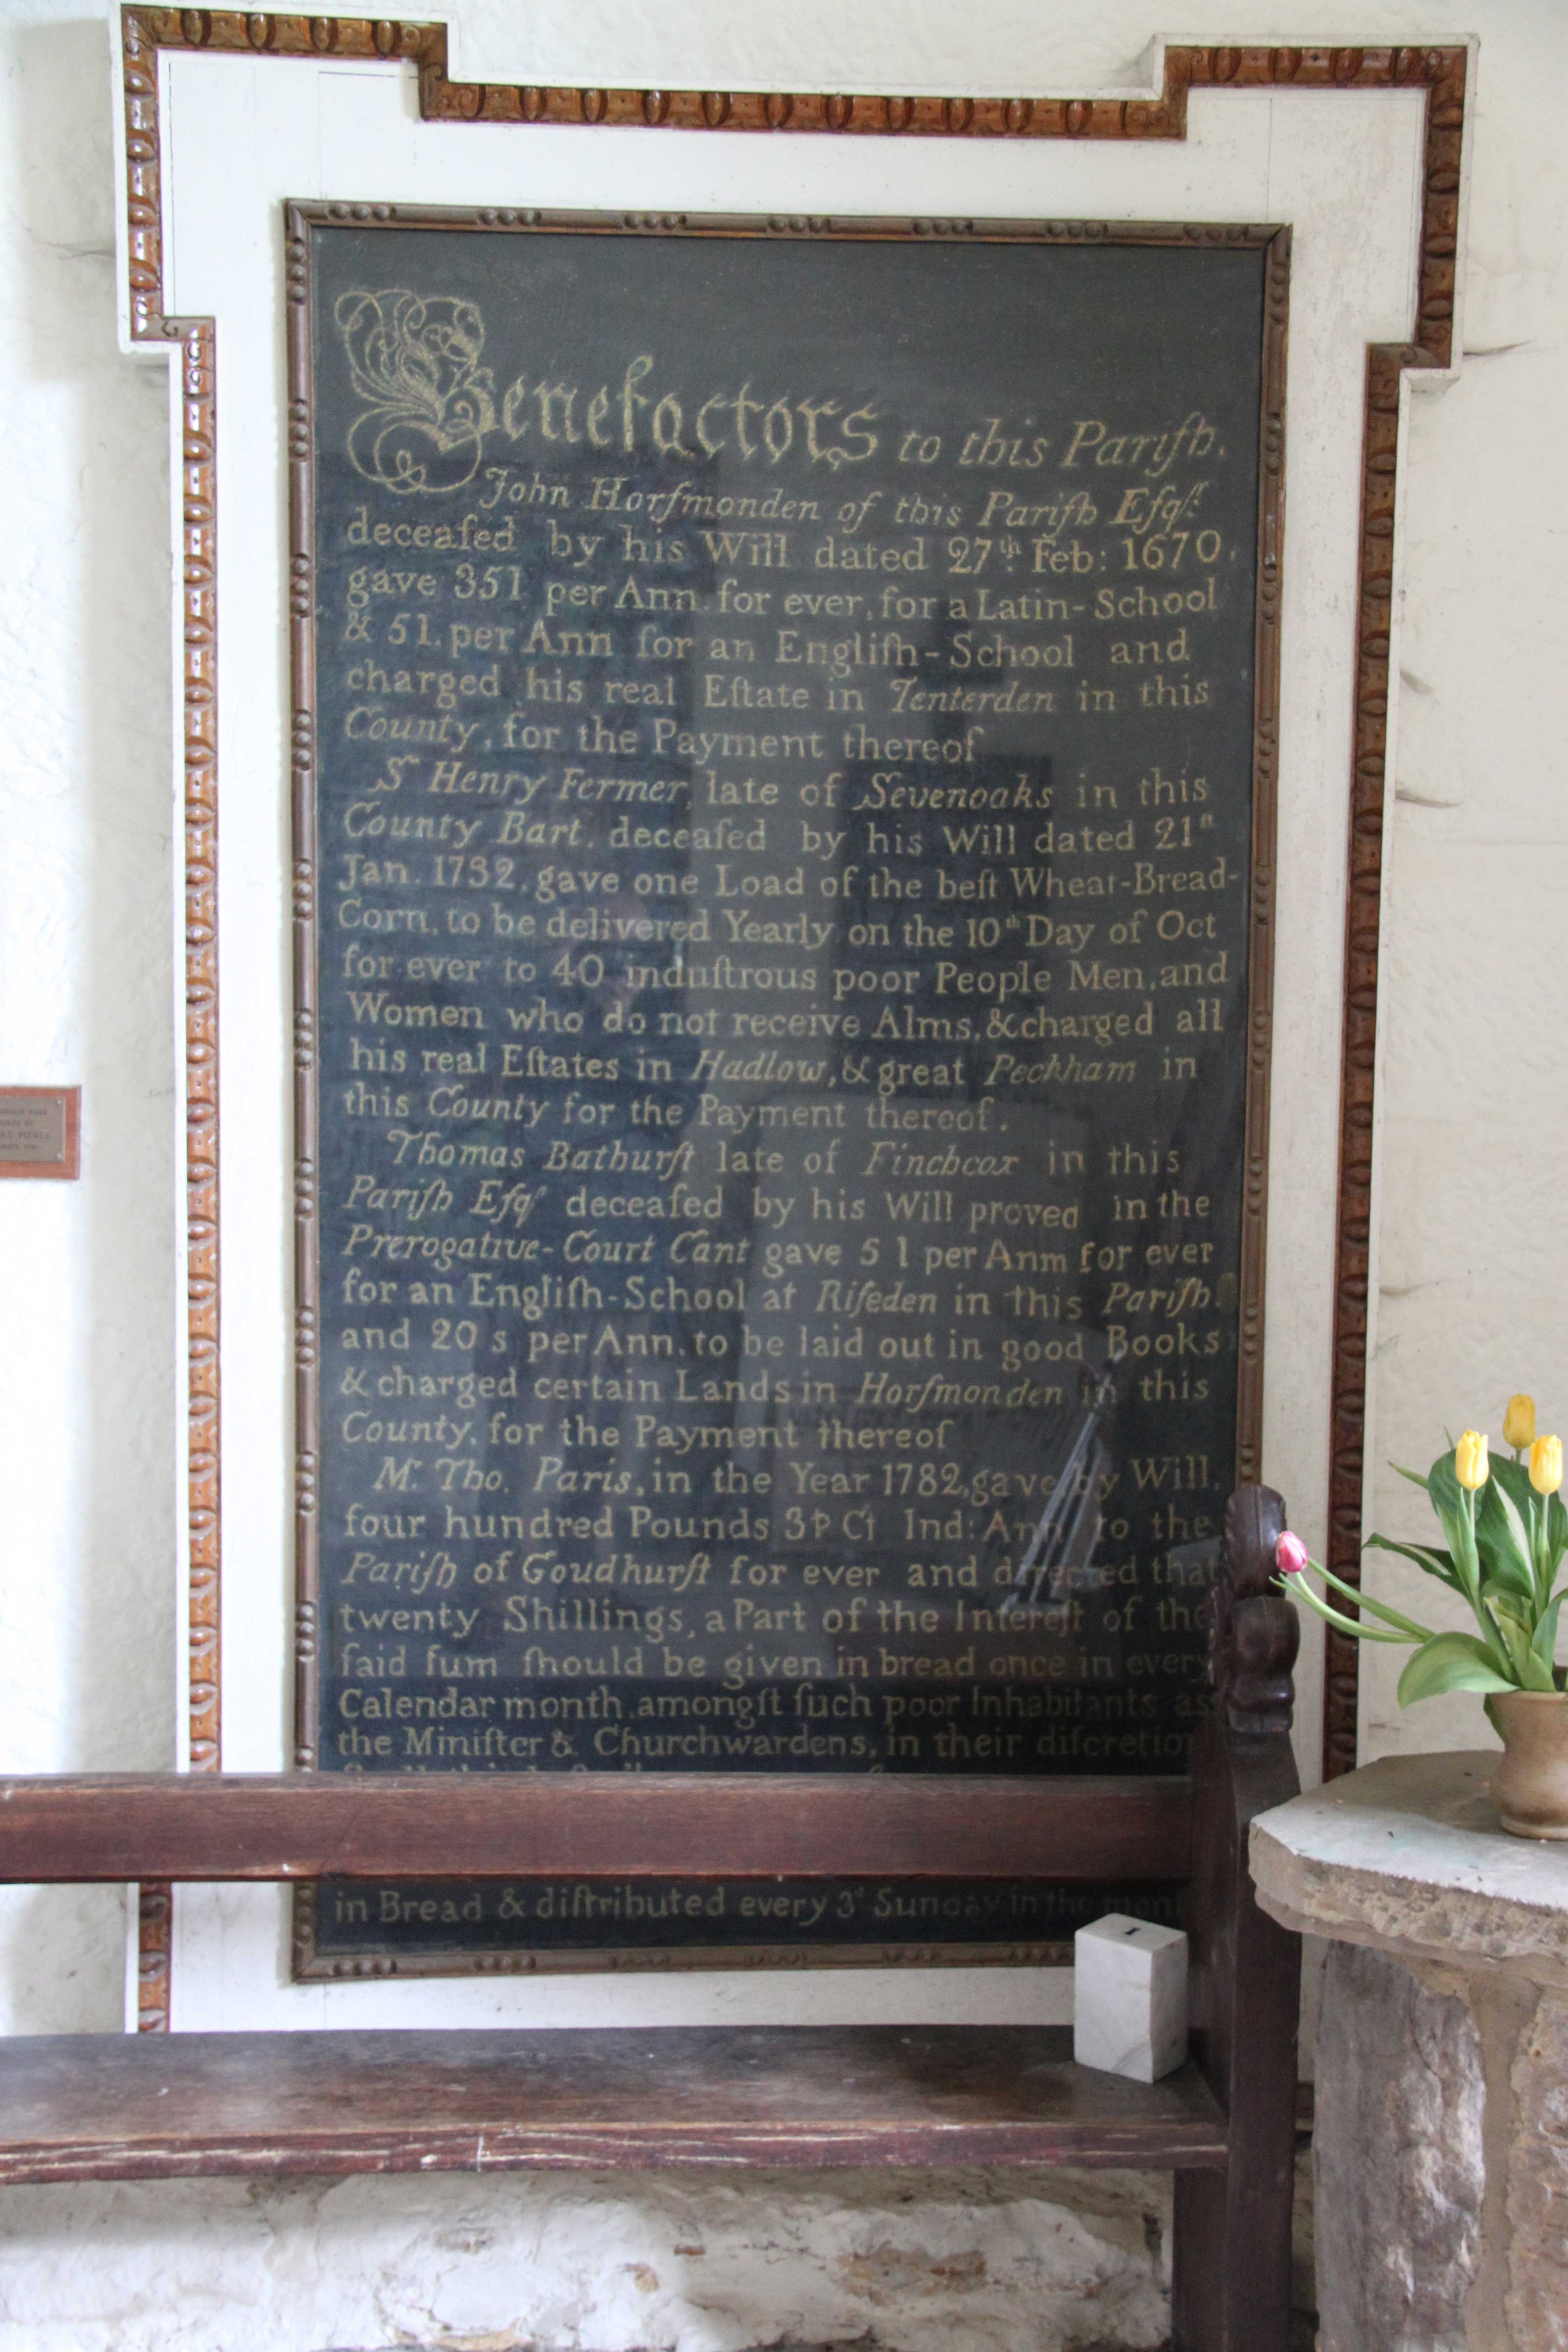 Benefactors to this Pariſh.
John Horſmonden of this Pariſh Eſqr.
deceaſed by his Will dated 27th. Feb: 1670,
gave 35l per Ann. for ever, for a Latin-School
& 5l. per Ann for an Engliſh-School and
charged his real Eſtate in Tenterden in this
County, for the Payment thereof
Sr Henry Fermer, late of Sevenoaks in this
County Bart. deceaſed by his Will dated 21st
Jan. 1732, gave one Load of the beſt Wheat-Bread-
Corn, to be delivered Yearly on the 10th Day of Oct
for ever to 40 induſtrous poor People Men, and
Women who do not receive Alms, & charged all
his real Eſtates in Hadlow, & great Peckham in
this County for the Payment thereof.
Thomas Bathurſt late of Finchcox in this
Pariſh Eſqr deceaſed by his Will proved in the
Prerogative-Court Cant gave 5 l per Anm for ever
for an Engliſh-School at Riſeden in this Pariſh.
and 20 s per Ann. to be laid out in good Books
& charged certain Lands in Horſmonden in this
County, for the Payment thereof
Mr. Tho. Paris, in the Year 1782, gave by Will,
four hundred Pounds 3 P Ct Ind: Ann to the
Pariſh of Goudhurſt for ever and directed that
twenty Shillings, a Part of the Intereſt of the
ſaid ſum ſhould be given in bread once in every
Calendar month, amongſt ſuch poor Inhabitants as
the Miniſter & Churchwardens, in their diſcretion
in Bread & diſtributed every 3d Sunday in the